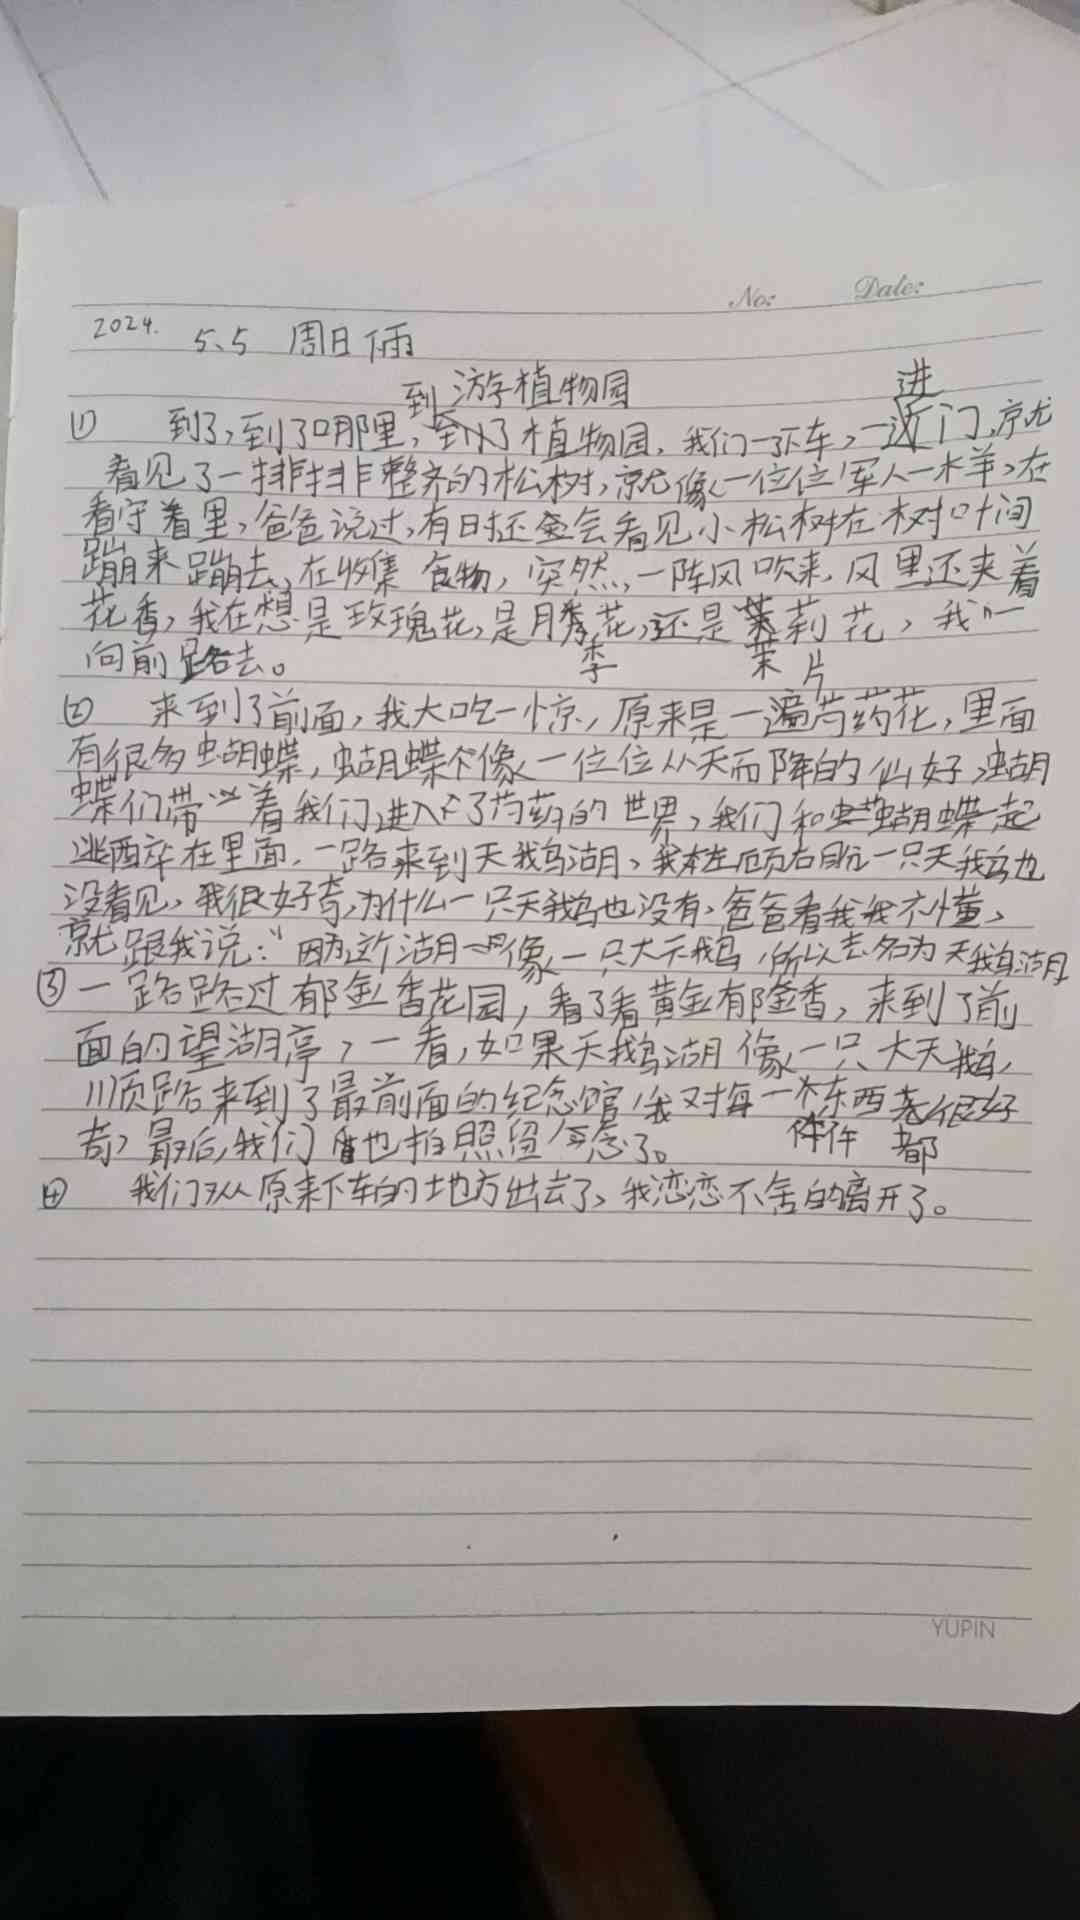 No: Date:
2024. 5.5 周日 雨
游植物园
到 进
① 到了,到了哪里,到了植物园,我们一下车,一近门,就
看见了一排排整齐的松树,就像一位位军人一样,在
看守着里,爸爸说过,有时还会看见小松树在树叶间
蹦来蹦去,在收集食物,突然,一阵风吹来,风里还夹着
花香,我在想是玫瑰花,是月季花,还是茉莉花,我一
向前路去。 季 茉 片
② 来到了前面,我大吃一惊,原来是一遍芍药花,里面
有很多蝴蝶,蝴蝶个像一位位从天而降的仙好,蝴
蝶们带着我们进入了芍药的世界,我们和蝴蝶一起
逃醉在里面,一路来到天鹅湖,我左顾右盼一只天鹅也
没看见,我很好奇,为什么一只天鹅也没有,爸爸看我不懂,
就跟我说:“因为这个湖像一只大天鹅,所以名为天鹅湖
③ 一路路过郁金香花园,看了看黄金郁金香,来到了前
面的望湖亭,一看,如果天鹅湖像一只大天鹅,
顺路来到了最前面的纪念馆,我对每一东西很好
奇,最后,我们也拍照留念了。 件 都
④ 我们从原来下车的地方出去了,我恋恋不舍的离开了。
YUPIN